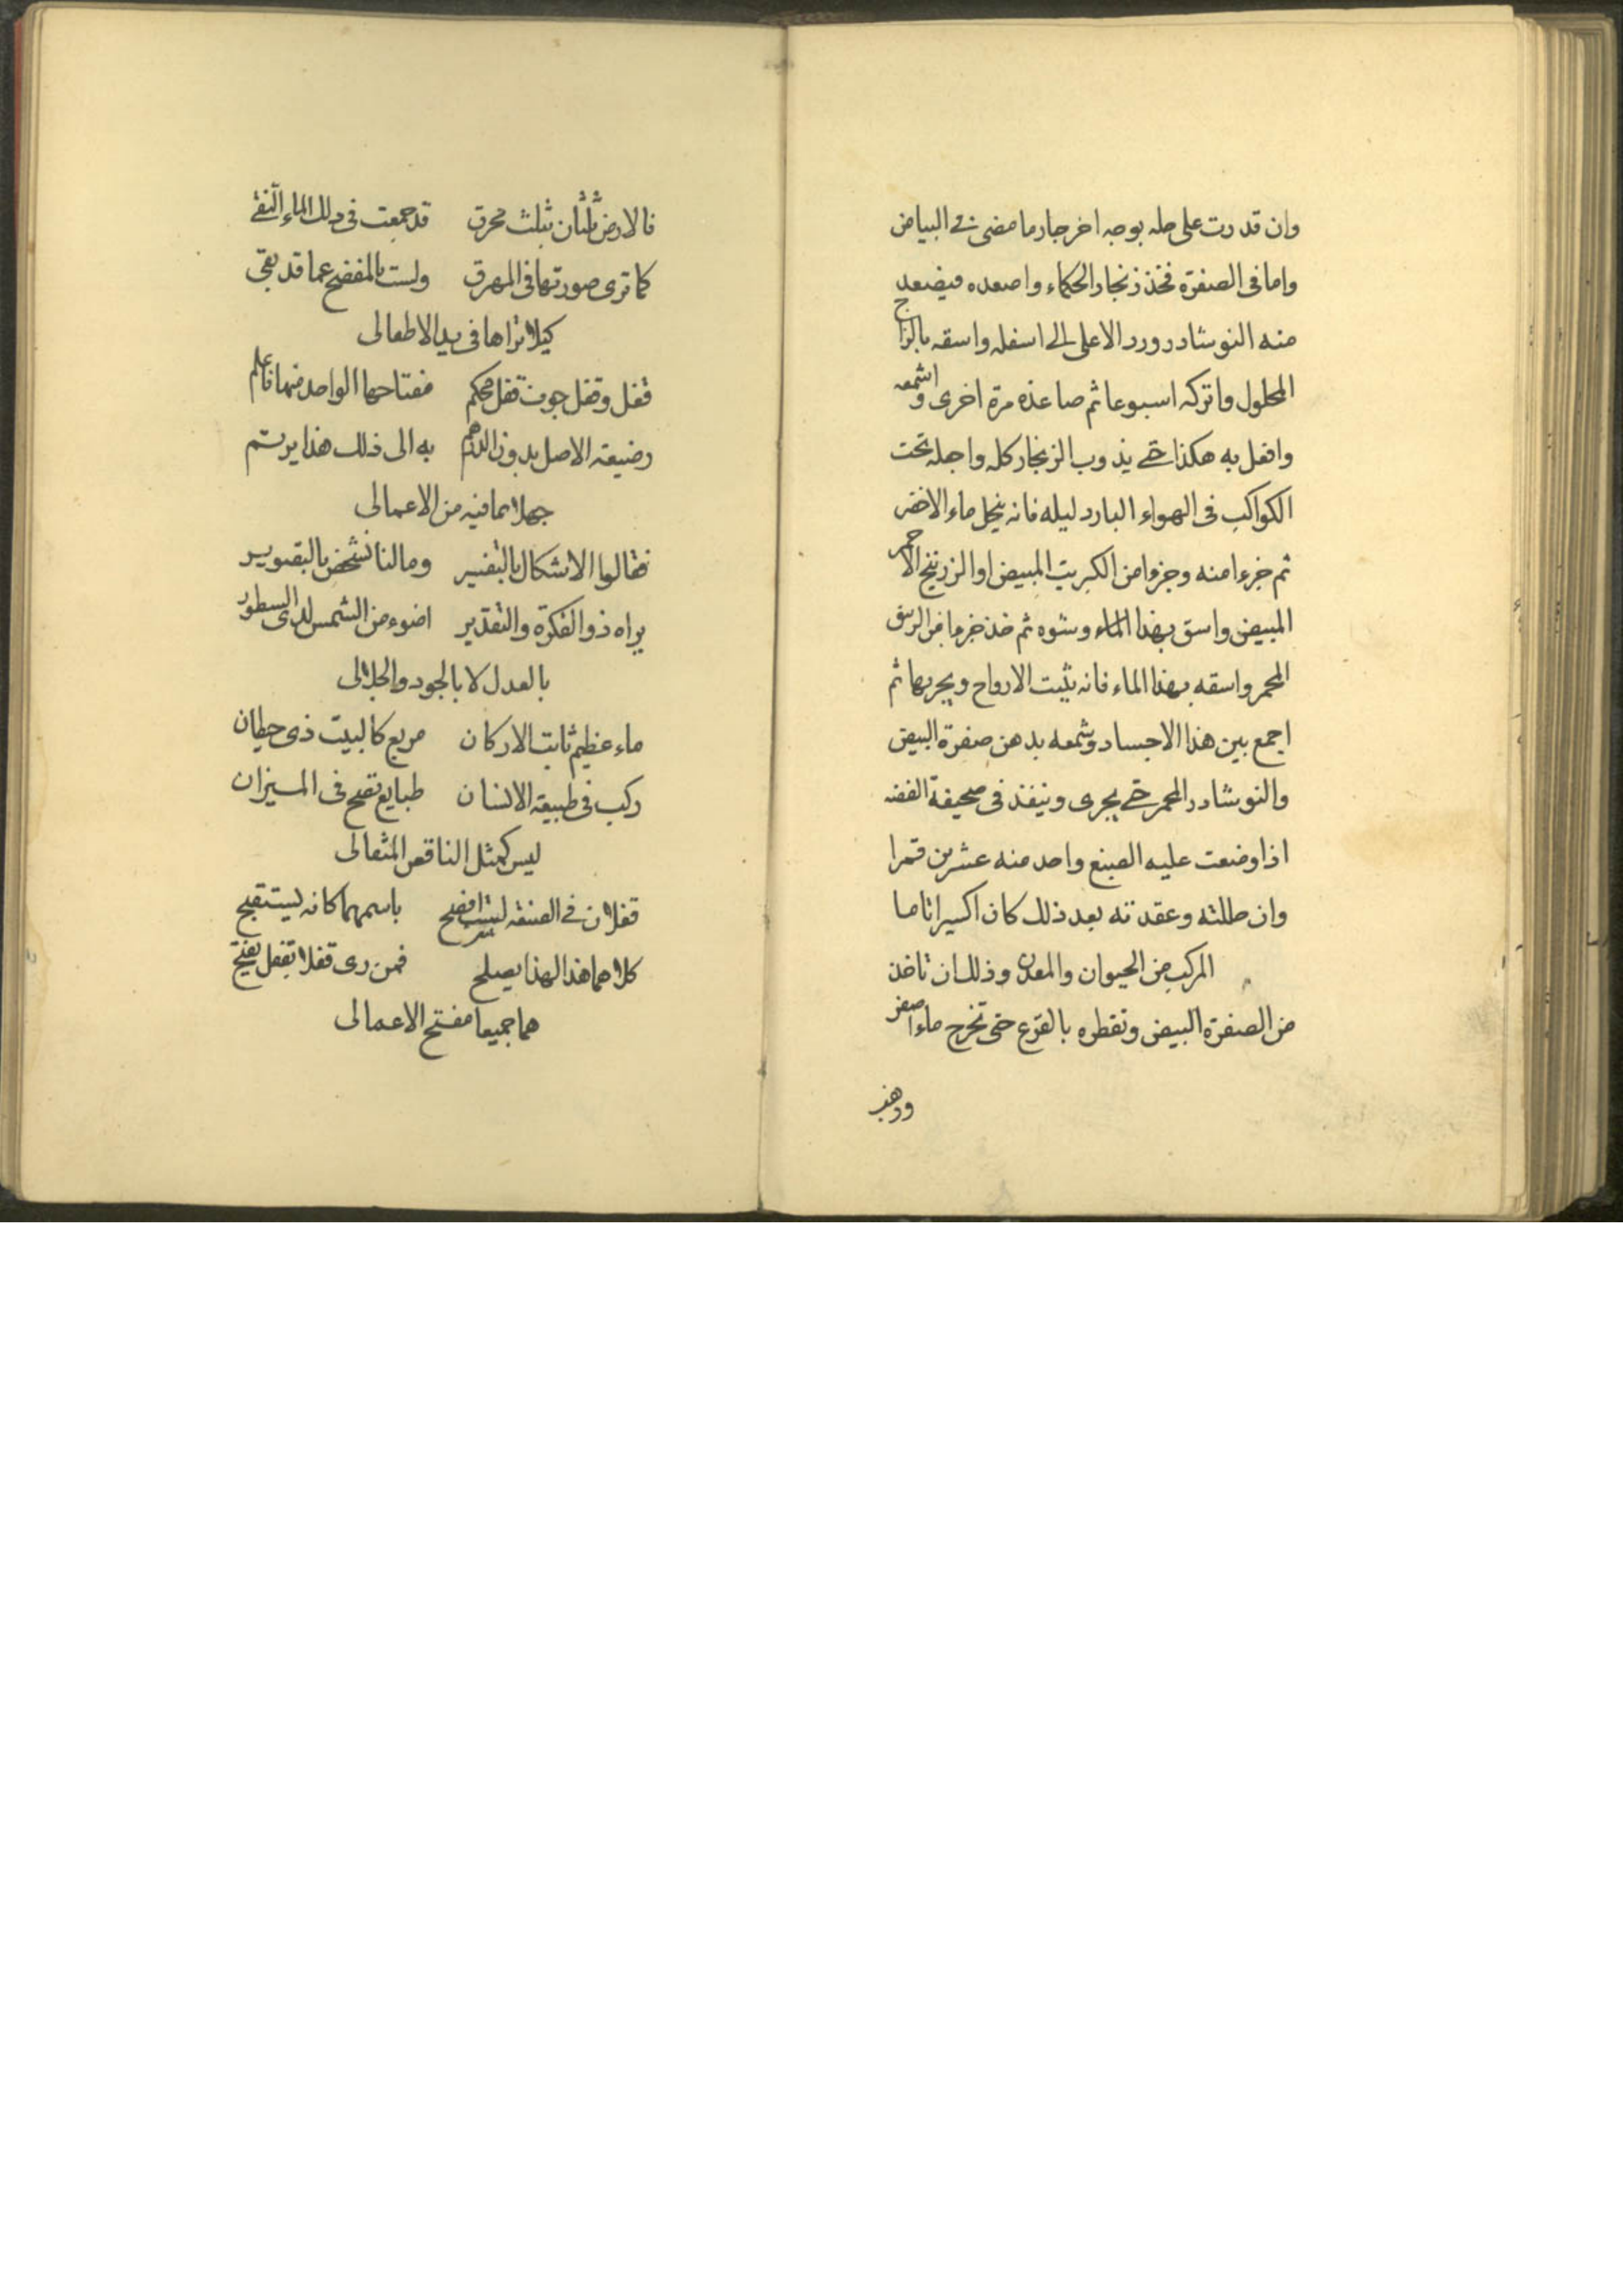 وان قدرت على حله بوجه اخر جاز ما مضى فى البياض
واما فى الصفرة فخذ زنجار الحكماء واصعده فيصعد
منه النوشادر ورد الاعلى الى اسفله واسقه بالزاج
المحلول واتركه اسبوعا ثم صاعده مرة اخرى واشمعه
وافعل به هكذا حتى يذوب الزنجار كله واجعله تحت
الكواكب فى الهواء البارد ليله فانه ينحل ماء الاخضر
ثم جزءا منه وجزءا من الكبريت المبيض او الزرنيخ الاحمر
المبيض واسق بهذا الماء وشوه ثم خذ جزءا من
المحمر واسقه بهذا الماء فانه يثبت الارواح ويجريها ثم
اجمع بين هذا الاجساد وشمعه بدهن صفرة البيض
والنوشادر المحمر حتى يجرى وينفذ فى صحيفة الفضه
اذا وضعت عليه الصبغ واحد منه عشرين قمرا
وان حللته وعقدته بعد ذلك كان اكسيرا تاما
المركب من الحيوان والمعدن وذلك ان تاخذ
من الصفرة البيض وتقطره بالقرع حتى تخرج ماء اصفر
ودهنه
فالارض ثلثان بثلث محرق قد جمعت فى ذلك الماء النقى
كما ترى صورتها فى المهرق ولست بالمفضح عما قد بقى
كيلا تراها فى يد الاطفالى
قفل وقفل جوف قفل محكم مفتاحها الواحد منها فاعلم
وضيعته الاصل بدون الدرهم به الى ذلك هذا يرتسم
جهلا بما فيه من الاعمالى
فقالوا الاشكال بالتفسير ومالنا نشخص بالتصوير
يراه ذو الفكرة والتقدير اضوء من الشمس لدى السطور
بالعدل لا بالجود والجلالى
ماء عظيم ثابت الاركان مربع كالبيت ذى حيطان
ركب فى طبيعة الانسان طبايع تصح فى الميزان
ليس كمثل الناقص المثقالى
قفلان فى الصنعة لست افصح باسمهما كانه يستقبح
كلاهما هذا لهذا يصلح فمن رى قفلا بقفل يفتح
هما جميعا مفتح الاعمالى